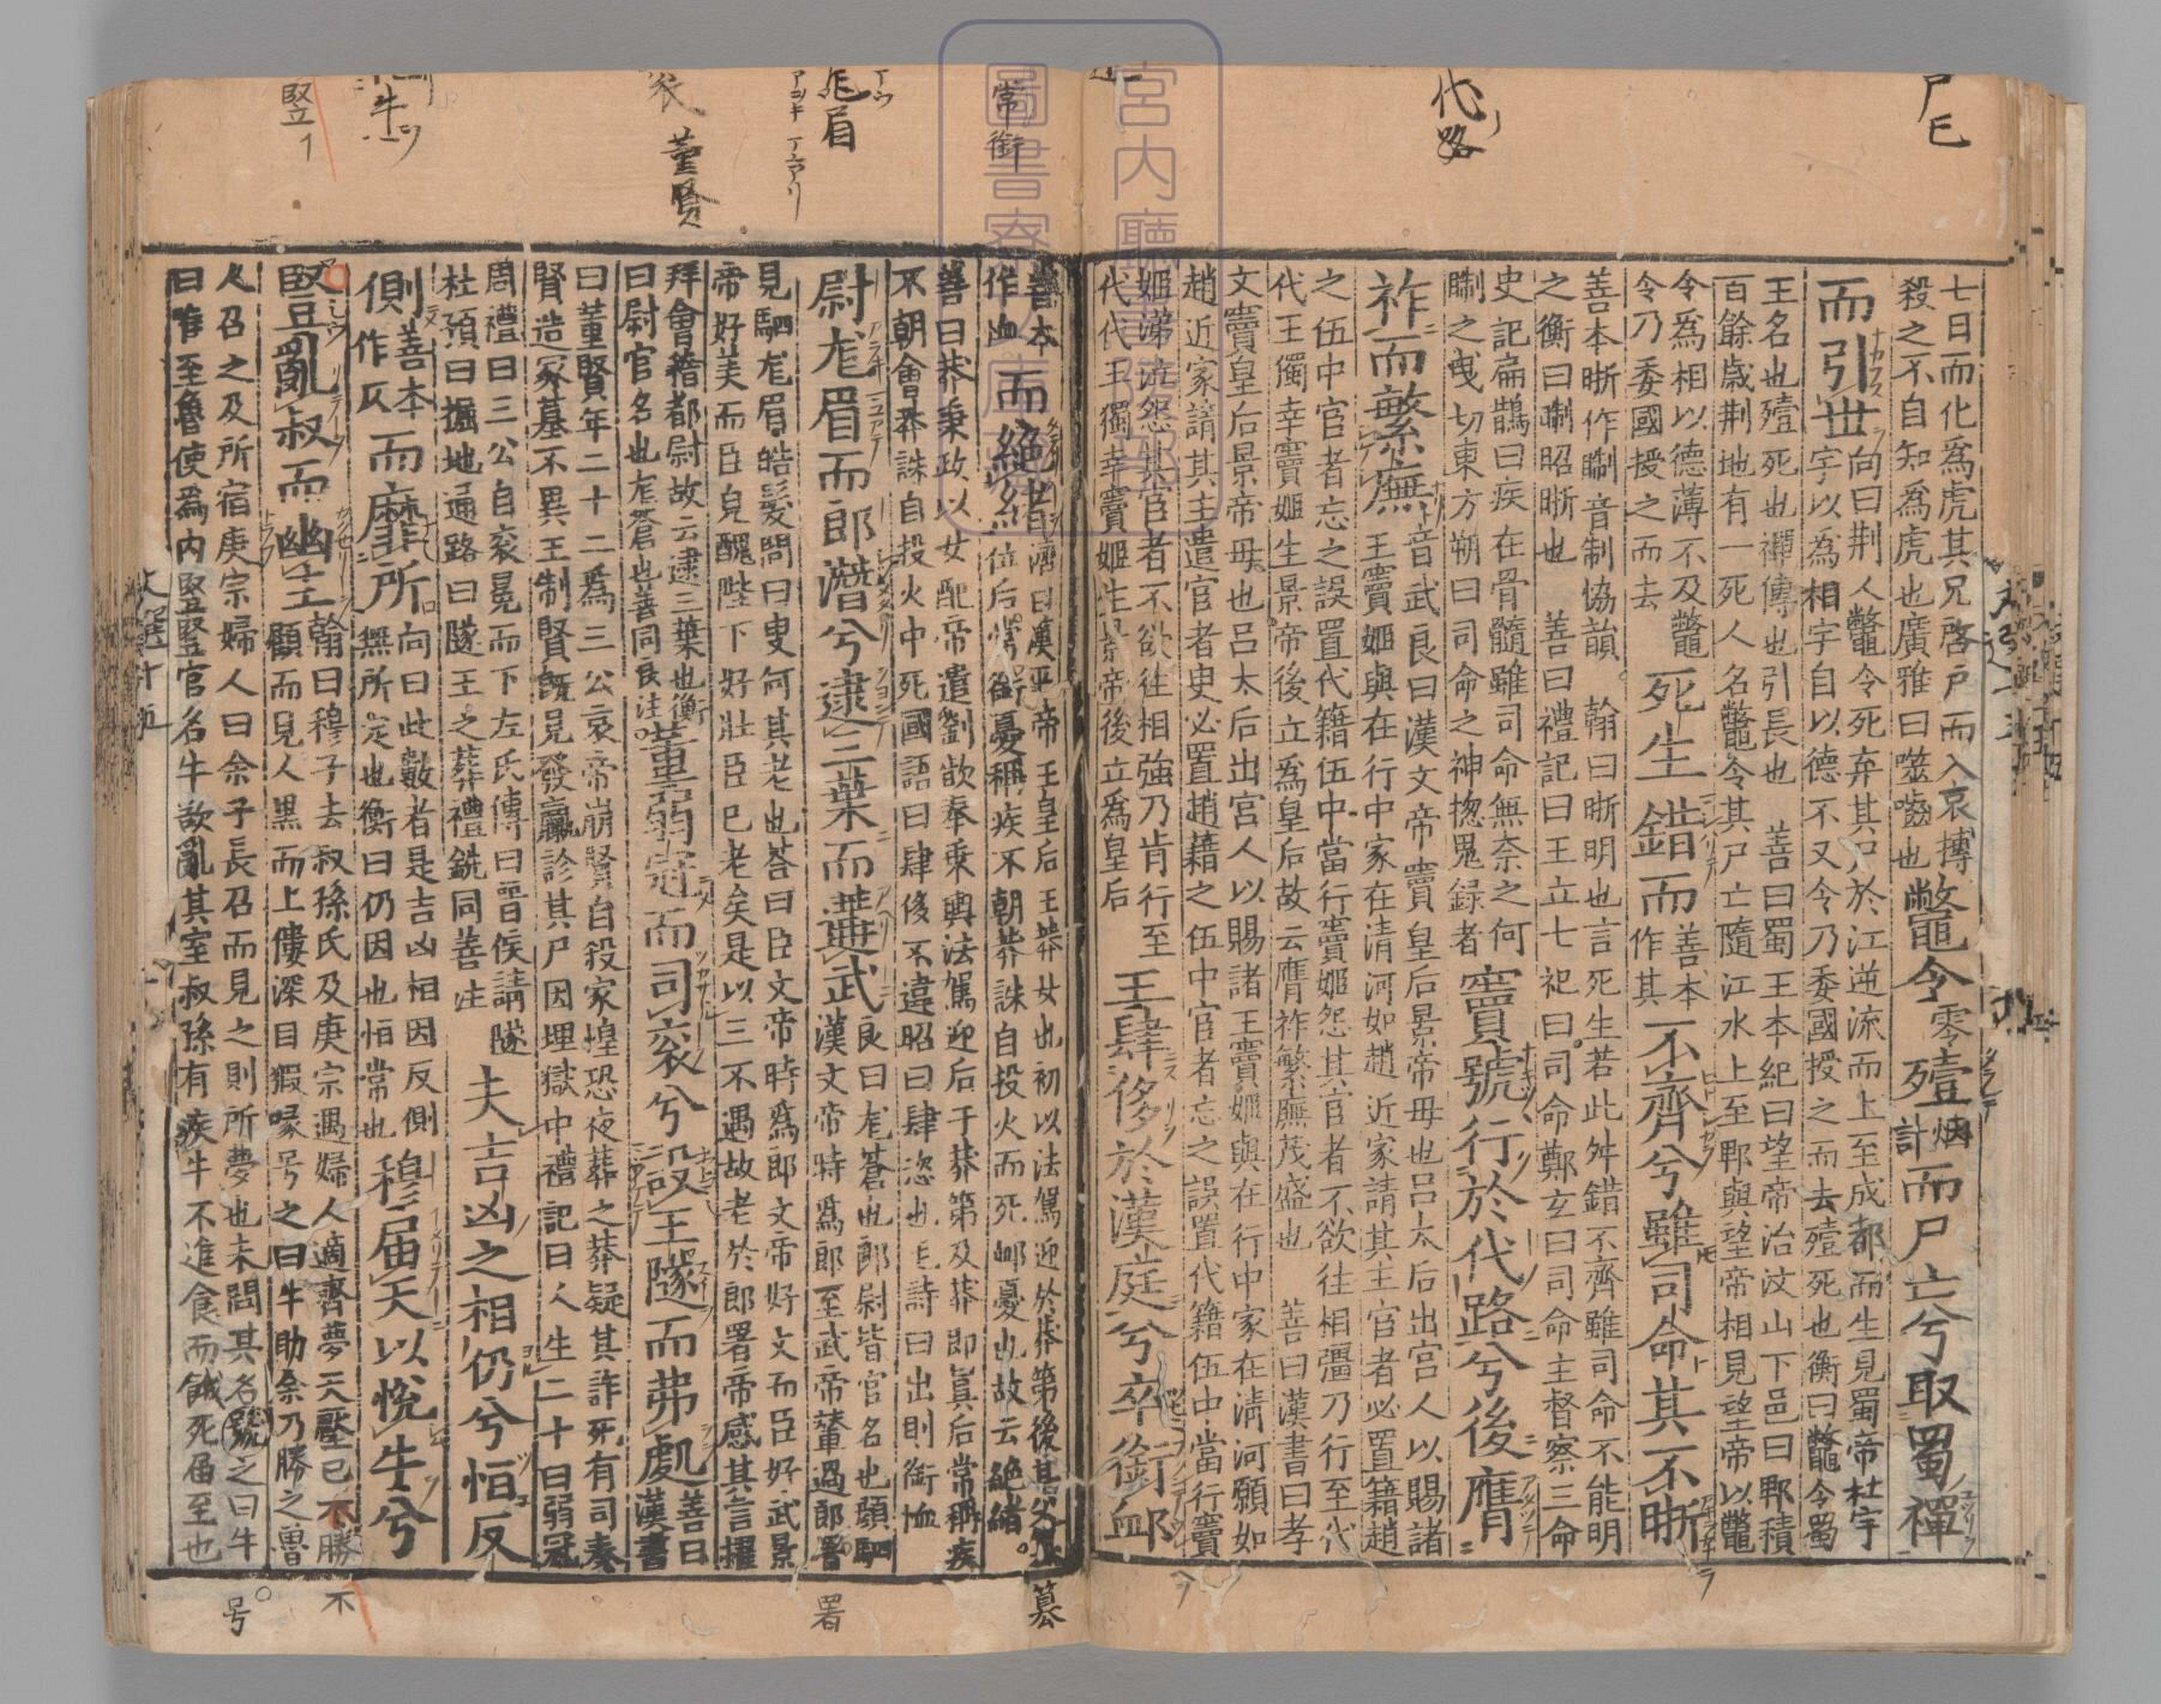 尸亡
代路
七日而化為虎其兄啓户而入哀搏
殺之不自知為虎也廣雅曰噬齧也
鼈令零殪烟計而尸亡兮取蜀禪
而引世
向曰荆人鼈令死弃其尸於江逆流而上至成都而生見蜀帝杜宇
字以為相字自以德不又令乃委國授之而去殪死也衡曰鼈令蜀
王名也殪死也禪傳也引長也 善曰蜀王本紀曰望帝治汶山下邑曰郫積
百餘歲荆地有一死人名鼈令其尸亡隨江水上至郫與望帝相見望帝以鼈
令為相以德薄不及鼈
令乃委國授之而去
死生錯而善本作其不齊兮雖司命其不晣
善本晣作䁤音制協韻 翰曰晣明也言死生若此舛錯不齊雖司命不能明
之衡曰䁤昭晣也 善曰禮記曰王立七祀曰司命鄭玄曰司命主督察三命
史記扁鵲曰疾在骨髓雖司命無柰之何
䁤之曳切東方朔曰司命之神揔鬼録者
竇號行於代路兮後膺
祚而繁廡
音武良曰漢文帝竇皇后景帝母也吕太后出宫人以賜諸
王竇姬與在行中家在清河如趙近家請其主官者必置籍趙
之伍中官者忘之誤置代籍伍中當行竇姬怨其官者不欲往相彊乃行至代
代王獨幸竇姬生景帝後立為皇后故云膺祚繁廡茂盛也 善曰漢書曰孝
文竇皇后景帝母也吕太后出宫人以賜諸王竇姬與在行中家在清河願如
趙近家請其主遣官者吏必置趙籍之伍中官者忘之誤置代籍伍中當行竇
姬涕泣怨其官者不欲往相強乃肯行至
代代王獨幸竇姬生景帝後立為皇后
王肆侈於漢庭兮卒銜邮
宮内廳
圖書寮
常銜
尨眉
董賢
豎
善本
作血
而絶緒
濟曰漢平帝王皇后王莽女也初以法駕迎於莽第後莽
位后常銜憂稱疾不朝莽誅自投火而死邮憂也故云絶緒
善曰莽秉政以女配帝遣劉歆奉乗輿法駕迎后于莽第及莽即眞后常稱疾
不朝會莽誅自投火中死國語曰肆侈不違昭曰肆恣也毛詩曰出則銜恤
尉尨眉而郎潛兮逮三葉而遘武
良曰尨蒼也郎尉皆官名也顔駟
漢文帝時爲郎至武帝輦過郎署
見駟尨眉皓髮問曰叟何其老也荅曰臣文帝時爲郎文帝好文而臣好武景
帝好美而臣皃醜陛下好壯臣已老矣是以三不遇故老於郎署帝感其言擢
拜會稽都尉故云逮三葉也衡
曰尉官名也尨蒼也善同良注
董弱冠而司衮兮設王隧而弗處
善曰
漢書
曰董賢年二十二爲三公哀帝崩賢自殺家惶恐夜葬之莽疑其詐死有司奏
賢造冢墓不異王制賢既見發臝診其尸因埋獄中禮記曰人生二十曰弱冠
周禮曰三公自衮冕而下左氏傳曰晉侯請隧
杜預曰掘地通路曰隧王之葬禮銑同善注
夫吉凶之相仍兮恒反
側善本作仄而靡所
向曰此數者是吉凶相因反側
無所定也衡曰仍因也恒常也
穆届天以悅牛兮
豎亂叔而幽主
翰曰穆子去叔孫氏及庚宗遇婦人適齊夢天壓已不勝
顧而見人黒而上僂深目猳喙号之曰牛助余乃勝之魯
人召之及所宿庚宗婦人曰余子長召而見之則所夢也未問其名號之曰牛
曰唯至魯使爲内豎豎官名牛欲亂其室叔孫有疾牛不進食而餓死届至也
墓
署
不
号